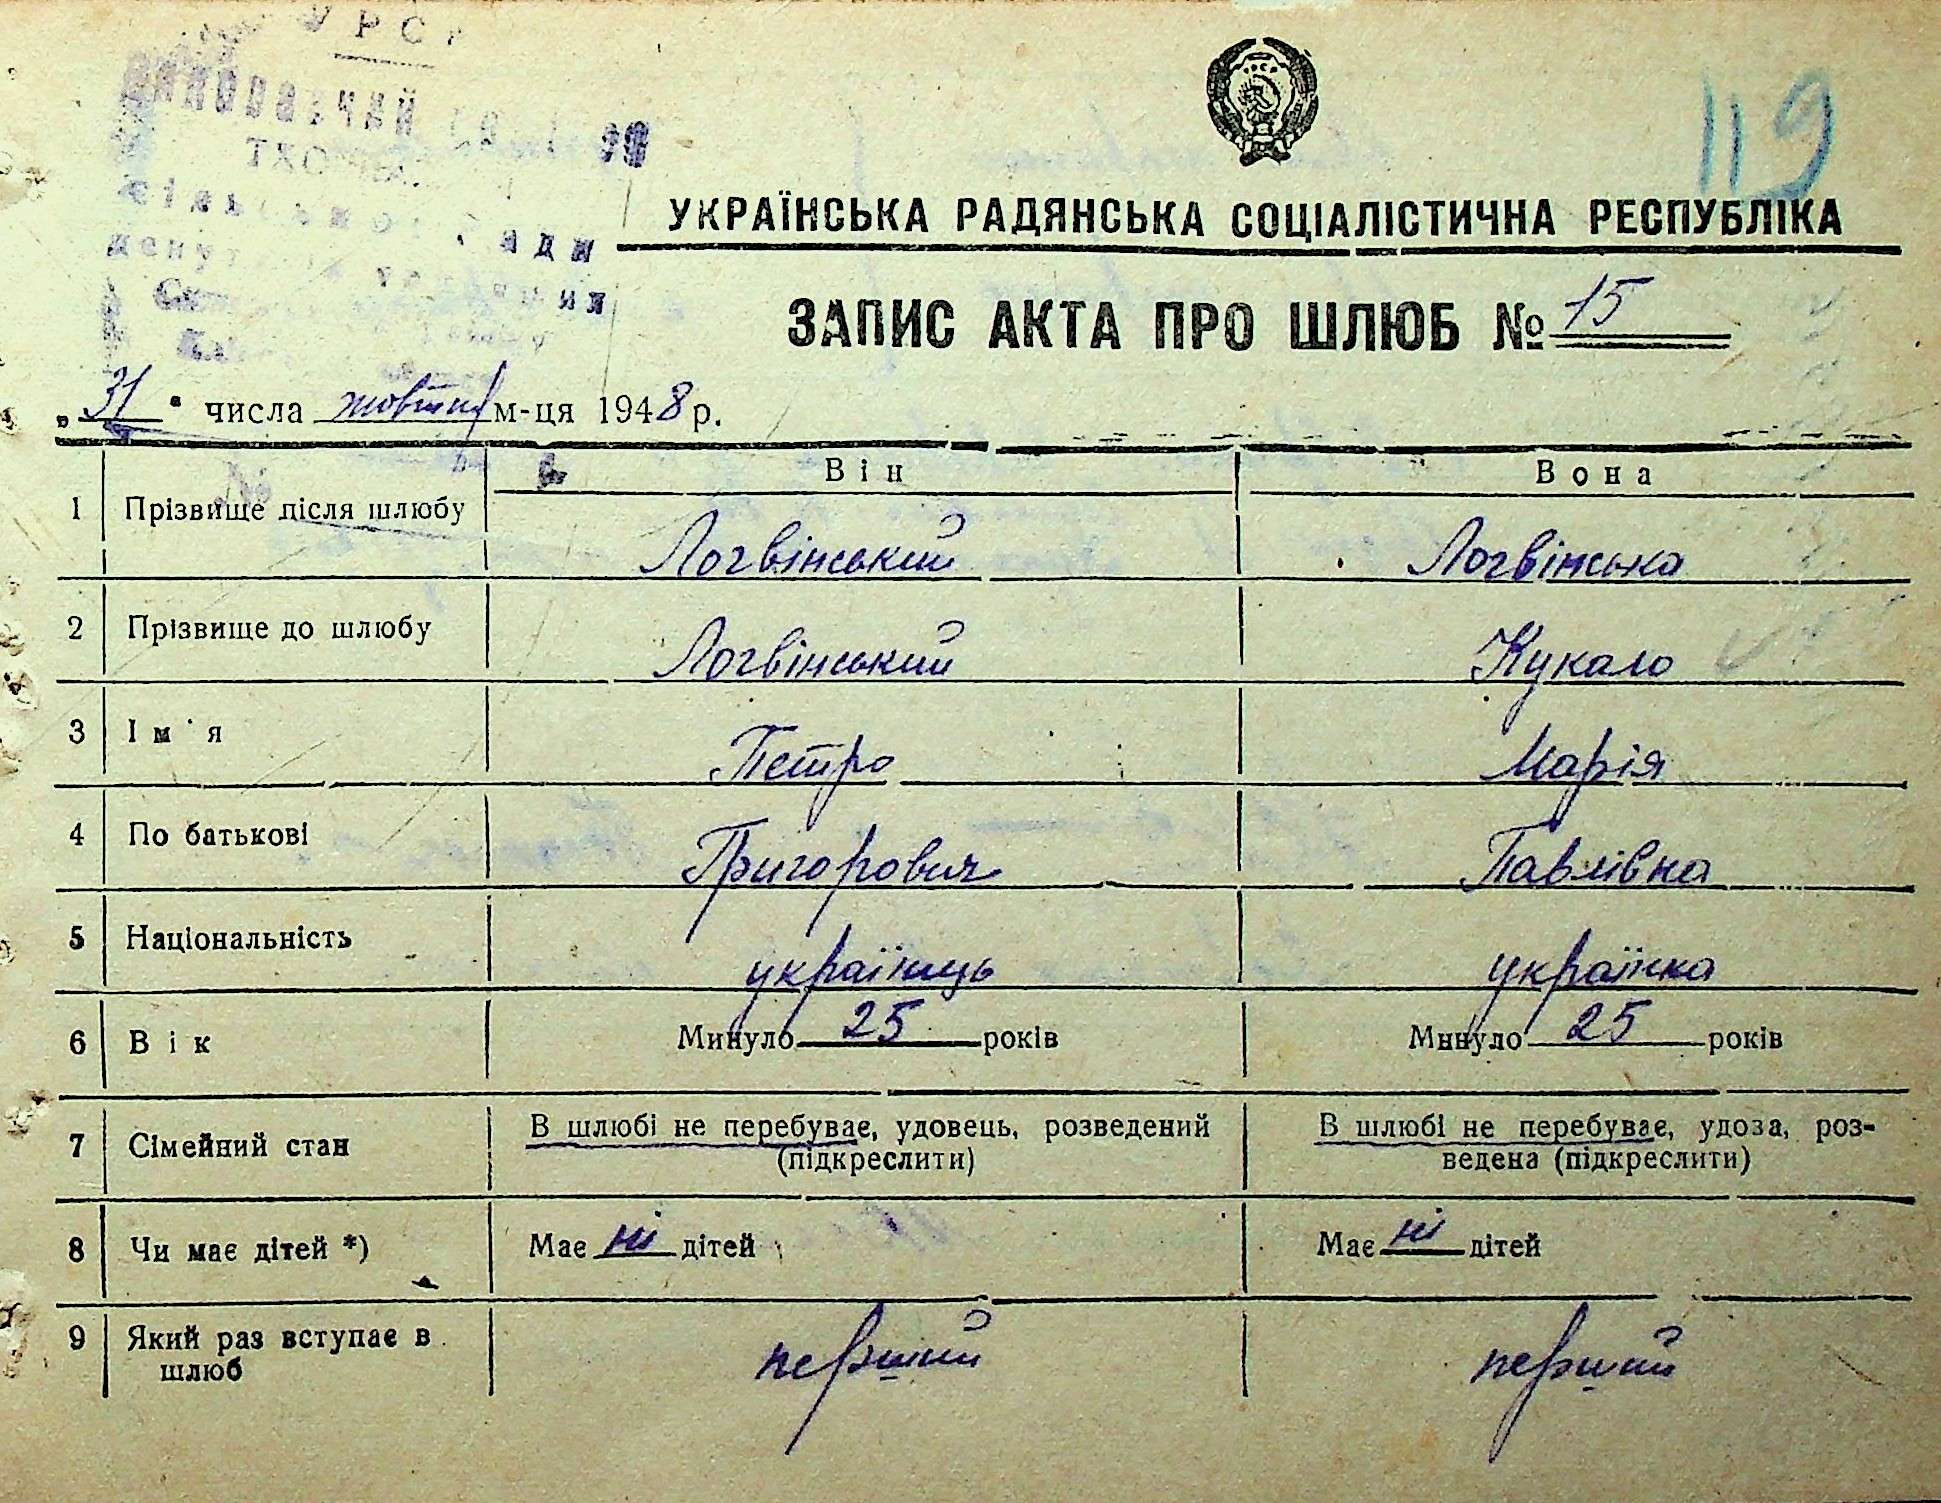 УРСР
Виконавчий
119
УКРАЇНСЬКА РАДЯНСЬКА СОЦІАЛІСТИЧНА РЕСПУБЛІКА
ЗАПИС АКТА ПРО ШЛЮБ № 15
„31“ числа жовтня м-ця 1948 р.
Він Вона
1 Прізвище після шлюбу Логвінський Логвінська
2 Прізвище до шлюбу Логвінський Кукало
3 Ім'я Петро Марія
4 По батькові Григорович Павлівна
5 Національність українець українка
6 Вік Минуло 25 років Минуло 25 років
7 Сімейний стан В шлюбі не перебуває, удовець, розведений В шлюбі не перебуває, удова, роз-
(підкреслити) ведена (підкреслити)
8 Чи має дітей *) Має ні дітей Має ні дітей
9 Який раз вступає в перший перший
шлюб